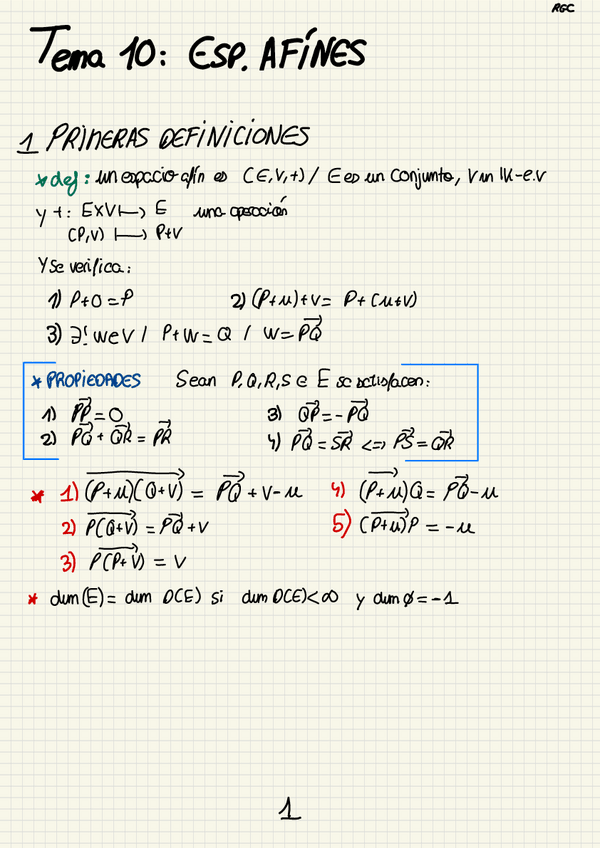 RGC
Tema 10: ESP. AFÍNES
1 PRIMERAS DEFINICIONES
* def: un espacio afín es (E,V,+) / E es un conjunto, V un IK-e.v
y +: E×V ↦ E una operación
(P,V) ↦ P+V
Y se verifica:
1) P+0=P 2) (P+u)+v= P+(u+v)
3) ∃! w∈V / P+W=Q / W=\overrightarrow{PQ}
* PROPIEDADES Sean P,Q,R,S ∈ E se satisfacen:
1) \overrightarrow{PP}=0 3) \overrightarrow{QP}=-\overrightarrow{PQ}
2) \overrightarrow{PQ} + \overrightarrow{QR} = \overrightarrow{PR} 4) \overrightarrow{PQ} = \overrightarrow{SR} <=> \overrightarrow{PS} = \overrightarrow{QR}
* 1) \overrightarrow{(P+u)(Q+v)} = \overrightarrow{PQ} + v-u 4) \overrightarrow{(P+u)Q} = \overrightarrow{PQ}-u
2) \overrightarrow{P(Q+v)} = \overrightarrow{PQ}+v 5) \overrightarrow{(P+u)P} = -u
3) \overrightarrow{P(P+V)} = V
* dim(E)= dim D(E) si dim D(E)<∞ y dim ∅=-1
1